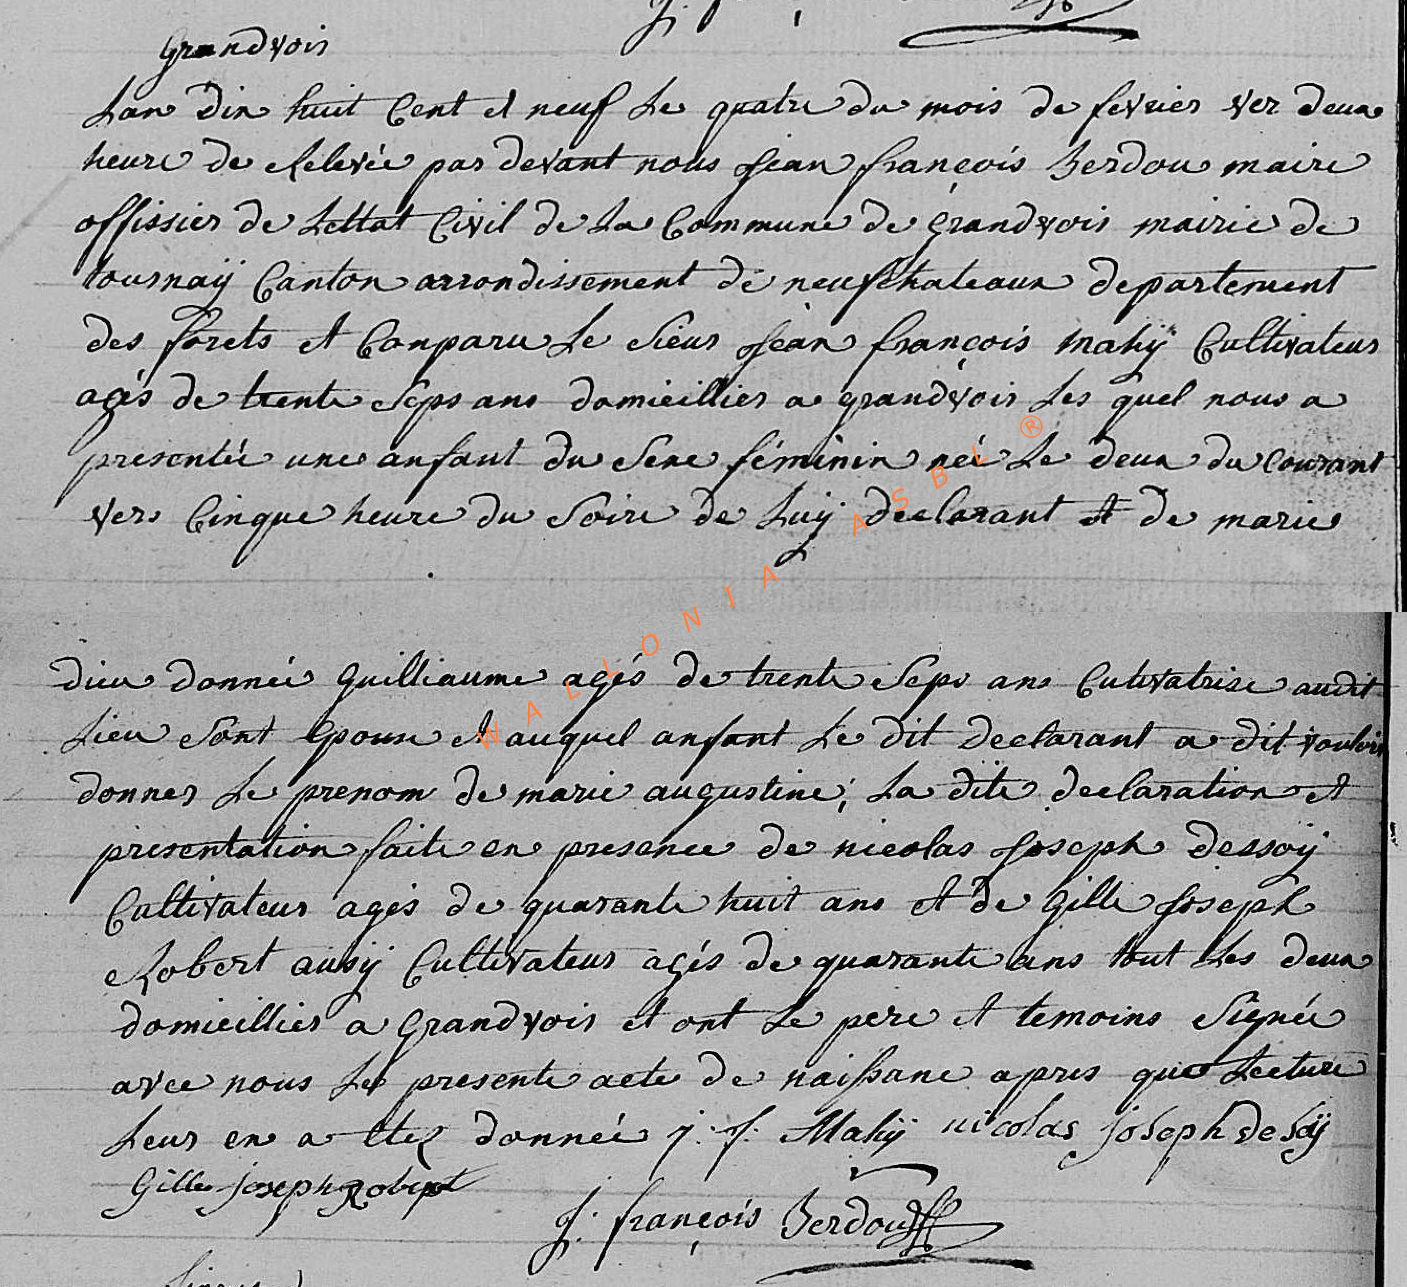 Grandvois
Lan dix huit Cent et neuf Le quatre du mois de fevrier ver deux
heure de Relevée par devant nous Jean françois Berdou maire
offissier de Lettat Civil de La Commune de grandvois mairie de
tournaÿ Canton arrondissement de neufchateaux departement
des forets et Comparu Le sieur Jean françois Mahÿ Cultivateur
agés de trente Seps ans domicillier a grandvois Les quel nous a
presentée une anfant du Sexe féminin née Le deux du courant
vers Cinque heure du Soire de Luÿ declarant et de marie
dieu donnée guilliaume agés de trente Seps ans Cutivatrise audit
Lieu Sont Epoux et auquel anfant Le dit declarant a dit vouloir
donner Le prenom de marie augustine; La dite declaration et
presentation faite en presence de nicolas Joseph Dessoÿ
Cultivateur agés de quarante huit ans et de gille Joseph
Robert ausÿ Cultivateur agés de quarante ans tout Les deux
domicillier a grandvois et ont Le pere et temoins Signée
avec nous Le presente acte de naissane apres que Lecture
Leur en a Etez donnée j: f: Mahÿ nicolas joseph de Soÿ
Gille joseph Robert
J: françois Berdou
WALLONIA ASBL ®